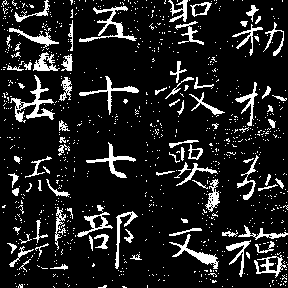 勅於弘福
聖教要文
五十七部
之法流洗